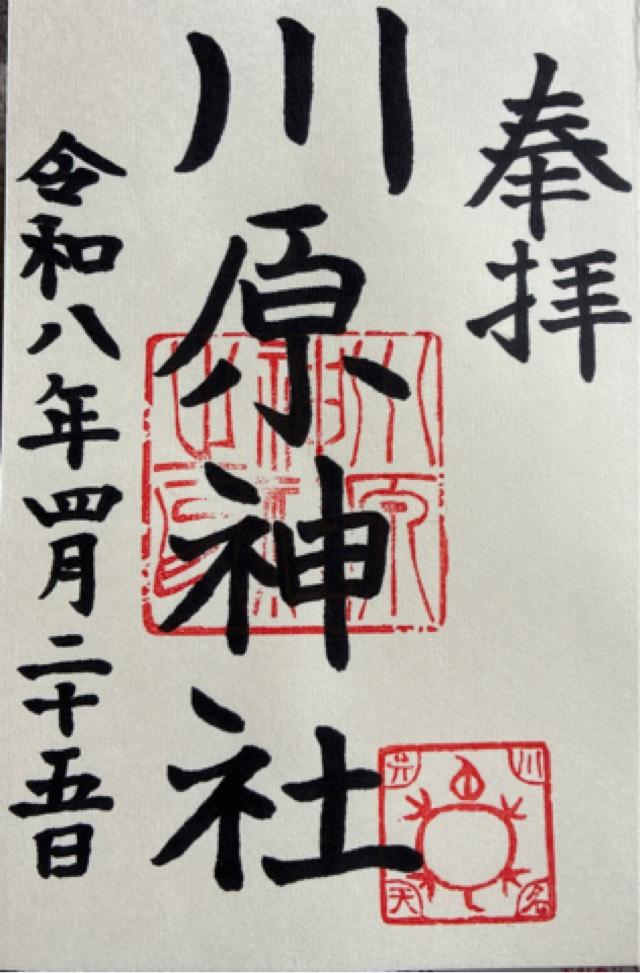 奉拝
川原神社
令和八年四月二十五日
川原神社